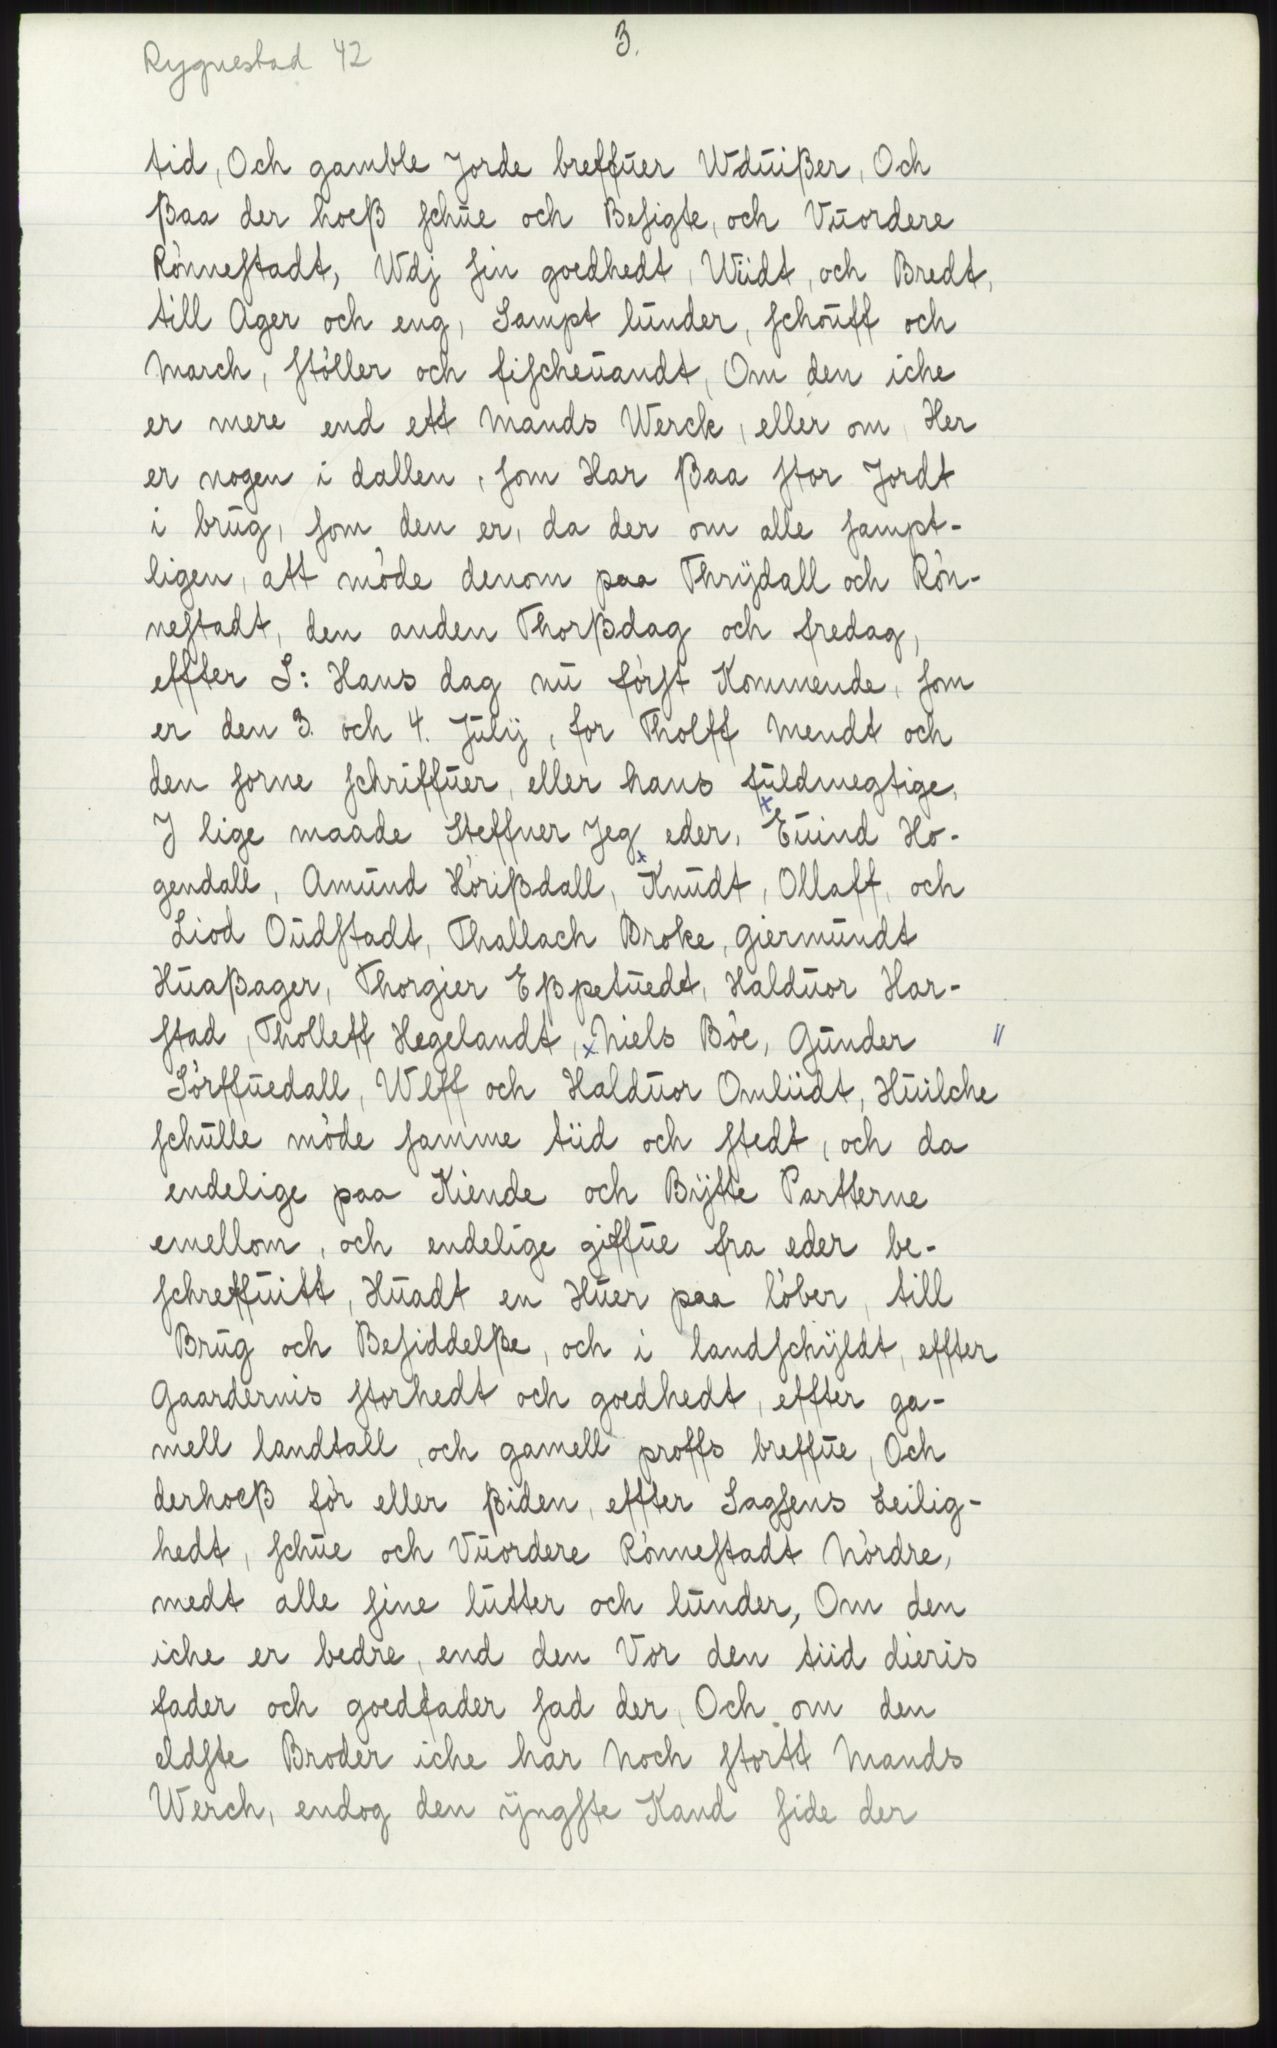 Rygnestad 42
3.
tid, Och gamble Jorde breffuer Wduißer, Och
ßaa der hoeß schue och Besigte, och Vuordere
Rönnestadt, Wdj sin goedhedt, Wiidt, och Bredt,
till Ager och eng, Sampt lunder, schouff och
March, stöller och fischeuandt, Om den iche
er mere end ett Mands Werck, eller om Her
er nogen i dallen, som Har ßaa stor Jordt
i brug, som den er, da der om alle sampt-
ligen, att möde denom paa Thrÿdall och Rön-
nestadt, den anden Thorßdag och fredag,
effter S: Hans dag nu först Kommende, som
er den 3. och 4. Julÿ, for Tholff Mendt och
den sorne schriffuer, eller hans fuldmegtige,
J lige maade Steffner Jeg eder, x Euind Ho-
gendall, Amund Hörißdall, x Knudt, Ollaff, och
Liod Oudstadt, Thallach Broke, Giermundt
Huaßager, Thorgier Eßpetuedt, Halduor Har-
stad, Tholleff Hegelandt, x Niels Böe, Gunder "
Sörffuedall, Wlff och Halduor Omliidt, Huilche
schulle möde samme tiid och stedt, och da
endelige paa Kiende och Bÿtte Partterne
emellom, och endelige giffue fra eder be-
schreffuitt, Huadt en Huer paa löber, till
Brug och Besiddelße, och i landschÿldt, effter
Gaardernis storhedt och goedhedt, effter ga-
mell landtall, och gamell proffs breffue, Och
derhoeß för eller ßiden, effter Sagsens Leilig-
hedt, schue och Vuordere Rönnestadt Nördre,
medt alle sine lutter och lunder, Om den
iche er bedre, end den Vor den tiid dieris
fader och goedfader sad der, Och om den
eldste Broder iche har Noch stortt Mands
Werch, endog den ÿngste Kand side der